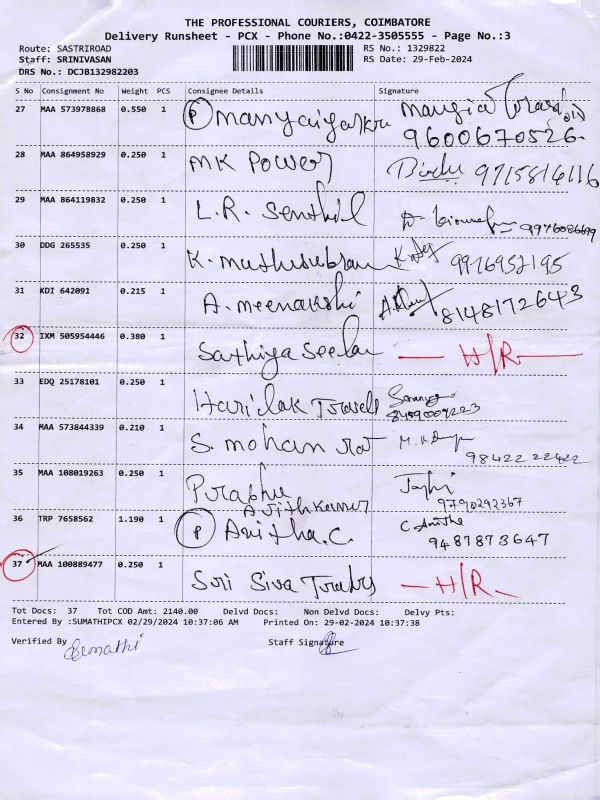 THE PROFESSIONAL COURIERS, COIMBATORE
Delivery Runsheet - PCX - Phone No.:0422-3505555 - Page No.:3
Route: SASTRIROAD RS No.: 1329822
Staff: SRINIVASAN RS Date: 29-Feb-2024
DRS No.: DCJB132982203
S No Consignment No Weight PCS Consignee Details Signature
27 MAA 573978868 0.550 1 P
9600670526
28 MAA 864958929 0.250 1 MK Power 9715814116
29 MAA 864119832 0.250 1 L.R. Senthil 9976086699
30 DDG 265535 0.250 1 K. 9976952195
31 KDI 642091 0.215 1 A. meenakshi 8148172643
32 IXM 505954446 0.380 1 Sathiya Seelan H/R
33 EDQ 25178101 0.250 1 Harilak Travels
34 MAA 573844339 0.210 1 S. mohan 98422 22422
35 MAA 108019263 0.250 1 Prabhu 9790292367
36 TRP 7658562 1.190 1 P Anitha.C. C. Anitha
9487873647
37 MAA 100889477 0.250 1 Sri Siva H/R
Tot Docs: 37 Tot COD Amt: 2140.00 Delvd Docs: Non Delvd Docs: Delvy Pts:
Entered By :SUMATHIPCX 02/29/2024 10:37:06 AM Printed On: 29-02-2024 10:37:38
Verified By Staff Signature
Sumathi